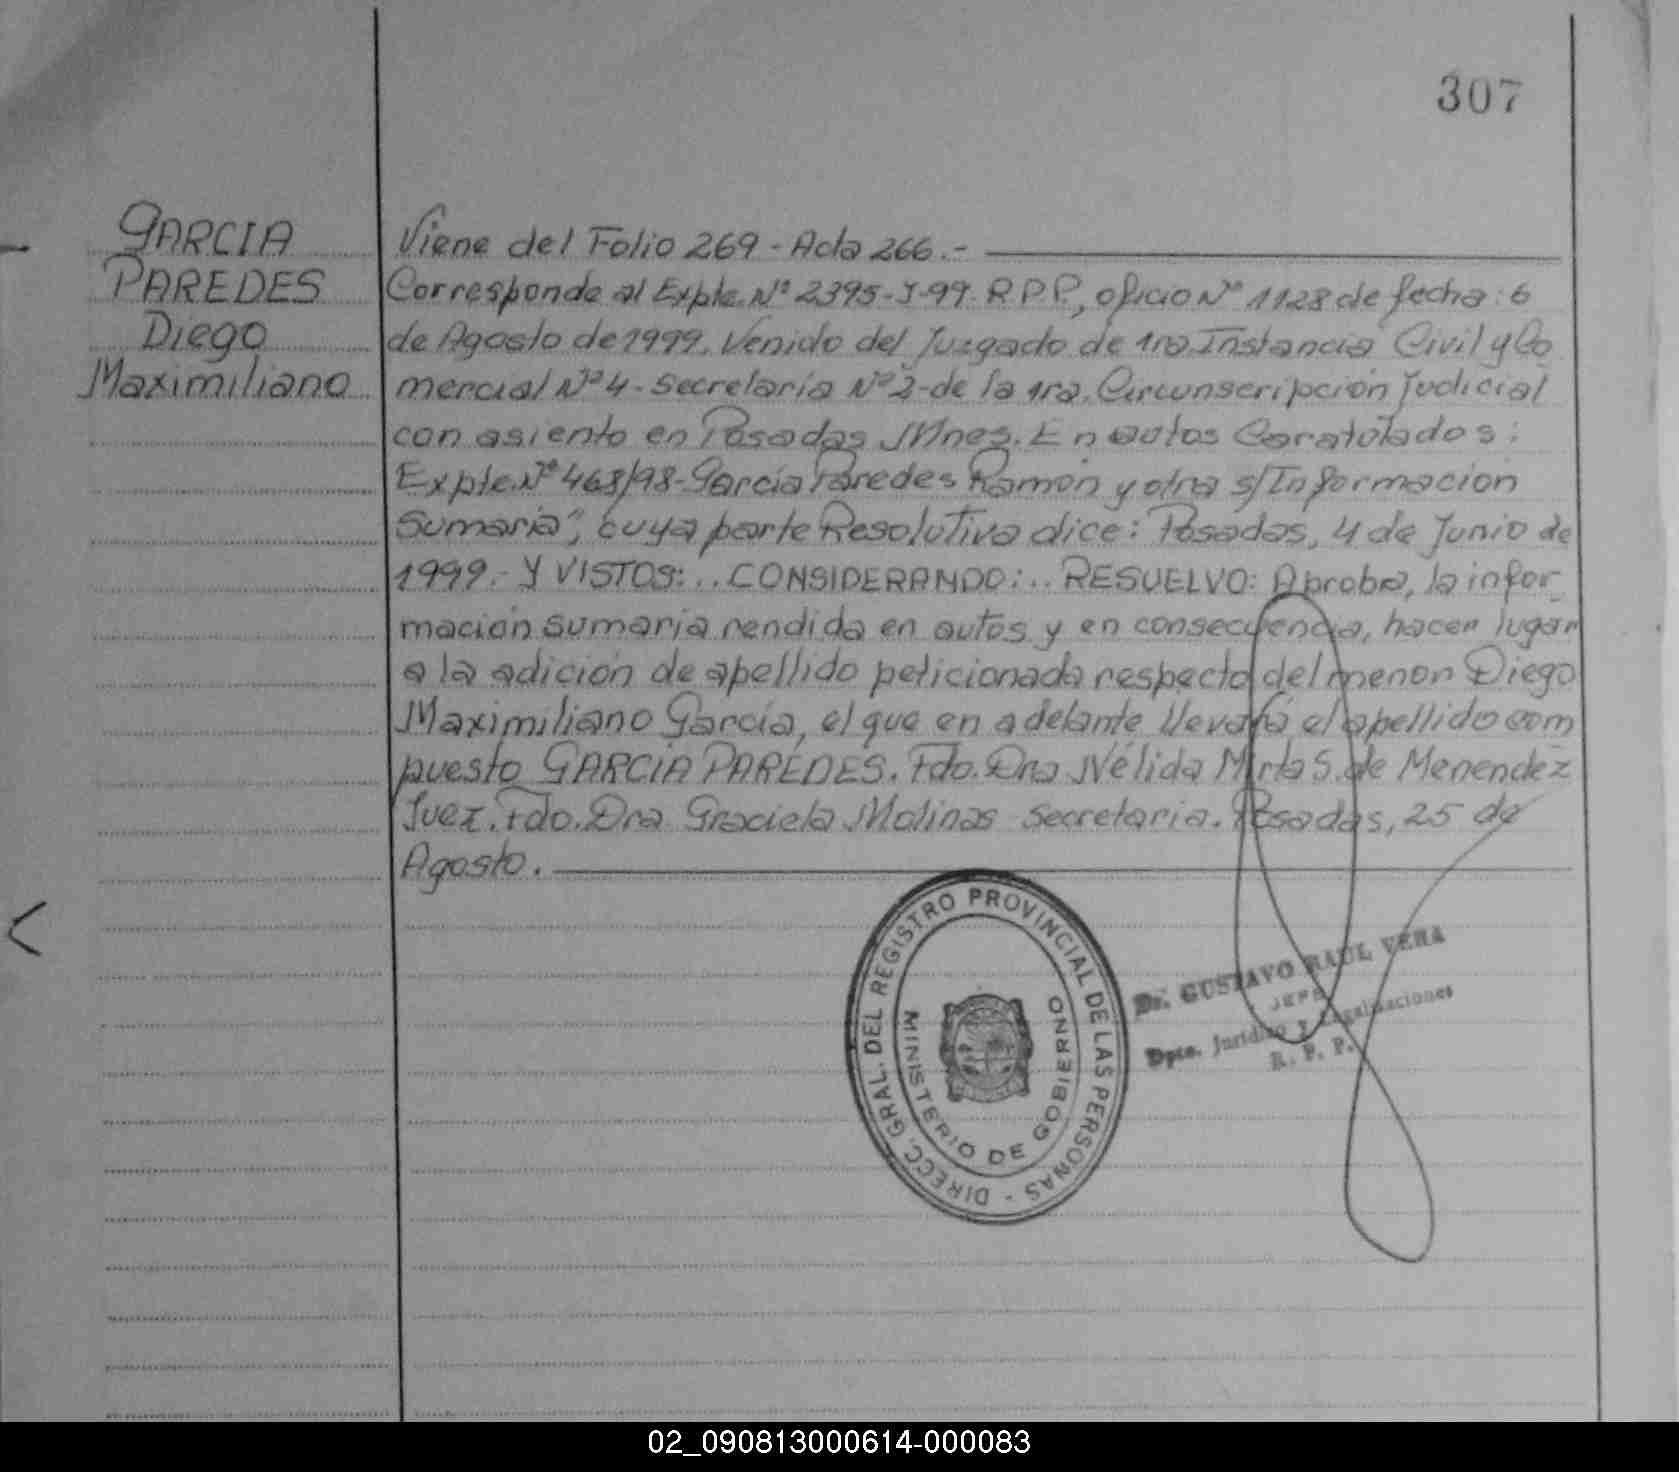 307
GARCIA
PAREDES
Diego
Maximiliano
Viene del Folio 269 - Acta 266.-
Corresponde al Expte. Nº 2395-J-99. R.P.P., oficio Nº 1128 de fecha: 6
de Agosto de 1999. Venido del Juzgado de 1ra Instancia Civil y Co
mercial Nº 4 - Secretaría Nº 2 - de la 1ra. Circunscripción Judicial
con asiento en Posadas Mnes. En autos Caratulados:
Expte. Nº 468/98 - García Paredes Ramón y otra s/Información
Sumaria", cuya parte Resolutiva dice: Posadas, 4 de Junio de
1999.- Y VISTOS:.. CONSIDERANDO:.. RESUELVO: Aprobar, la infor
mación sumaria rendida en autos y en consecuencia, hacer lugar
a la adición de apellido peticionada respecto del menor Diego
Maximiliano García, el que en adelante llevará el apellido com
puesto GARCIA PAREDES. Fdo. Dra Nélida Mirta S. de Menendez
Juez. Fdo. Dra Graciela Molinas Secretaria. Posadas, 25 de
Agosto.
DIRECC. GRAL. DEL REGISTRO PROVINCIAL DE LAS PERSONAS -
MINISTERIO DE GOBIERNO
Dr. GUSTAVO RAUL VERA
JEFE
Dpto. Jurídico y Legalizaciones
R. P. P.
02_090813000614-000083